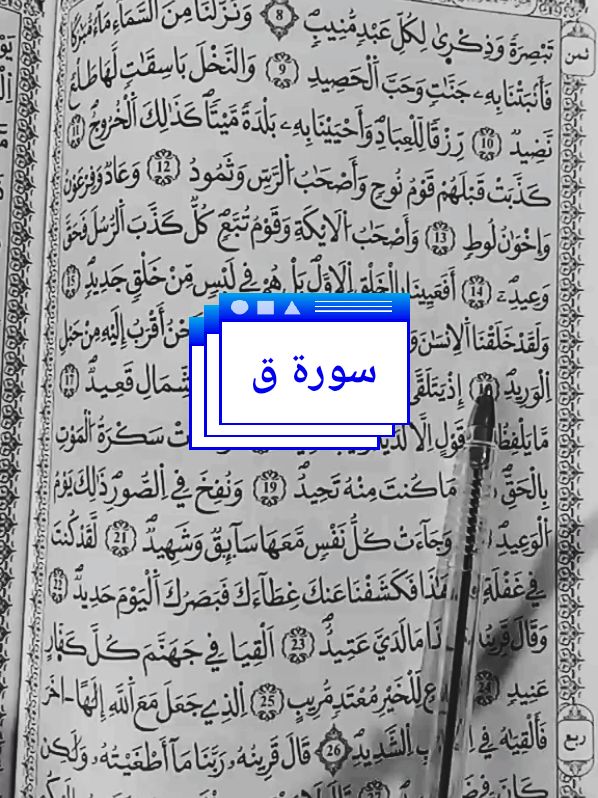 تَبْصِرَةً وَذِكْر۪يٰ لِكُلِّ عَبْدٖ مُّنِيبٖۖ 8 وَنَزَّلْنَا مِنَ اَ۬لسَّمَآءِ مَآءٗ مُّبَٰرَكاٗ
ثمن
فَأَنۢبَتْنَا بِهِۦ جَنَّٰتٖ وَحَبَّ اَ۬لْحَصِيدِ 9 وَالنَّخْلَ بَاسِقَٰتٖ لَّهَا طَلْعٞ
نَّضِيدٞ 10 رِّزْقاٗ لِّلْعِبَادِۖ وَأَحْيَيْنَا بِهِۦ بَلْدَةٗ مَّيْتاٗۖ كَذَٰلِكَ اَ۬لْخُرُوجُۖ 11
كَذَّبَتْ قَبْلَهُمْ قَوْمُ نُوحٖ وَأَصْحَٰبُ اُ۬لرَّسِّ وَثَمُودُ 12 وَعَادٞ وَفِرْعَوْنُ
وَإِخْوَٰنُ لُوطٖ 13 وَأَصْحَٰبُ اُ۬لَايْكَةِ وَقَوْمُ تُبَّعٖۖ كُلّٞ كَذَّبَ اَ۬لرُّسُلَ فَحَقَّ
وَعِيدِۦٓۖ 14 أَفَعَيِينَا بِالْخَلْقِ اِ۬لَاوَّلِۖ بَلْ هُمْ فِے لَبْسٖ مِّنْ خَلْقٖ جَدِيدٖۖ 15
وَلَقَدْ خَلَقْنَا اَ۬لِانسَٰنَ أَقْرَبُ إِلَيْهِ مِنْ حَبْلِ
اِ۬لْوَرِيدِۖ 16 إِذْ يَتَلَقَّى اَ۬لشِّمَالِ قَعِيدٞۖ 17
سورة ق
مَّا يَلْفِظُ قَوْلٍ اِلَّا سَكْرَةُ اُ۬لْمَوْتِ
بِالْحَقِّۖ مَا كُنتَ مِنْهُ تَحِيدُۖ 19 وَنُفِخَ فِے اِ۬لصُّورِۖ ذَٰلِكَ يَوْمُ
اُ۬لْوَعِيدِۖ وَجَآءَتْ كُلُّ نَفْسٖ مَّعَهَا سَآئِقٞ وَشَهِيدٞۖ 21 لَّقَدْ كُنتَ
فِے غَفْلَةٖ هَٰذَا فَكَشَفْنَا عَنكَ غِطَآءَكَ فَبَصَرُكَ اَ۬لْيَوْمَ حَدِيدٞۖ 22
وَقَالَ قَرِينُهُۥ مَا لَدَيَّ عَتِيدٌۖ 23 اَلْقِيَا فِے جَهَنَّمَ كُلَّ كَفّ۪ارٍ
عَنِيدٖ 24 لِّلْخَيْرِ مُعْتَدٖ مُّرِيبٍ 25 اِ۬لذِے جَعَلَ مَعَ اَ۬للَّهِ إِلَٰهاً اٰخَرَ
فَأَلْقِيَٰهُ فِے اِ۬لشَّدِيدِۖ 26 قَالَ قَرِينُهُۥ رَبَّنَا مَآ أَطْغَيْتُهُۥ وَلَٰكِن
ربع
كَانَ فِے